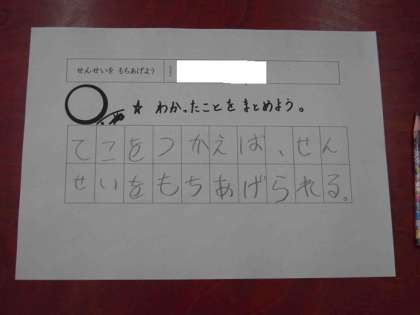 せんせいを もちあげよう
☆ わかったことを まとめよう。
てこをつかえば、せん
せいをもちあげられる。